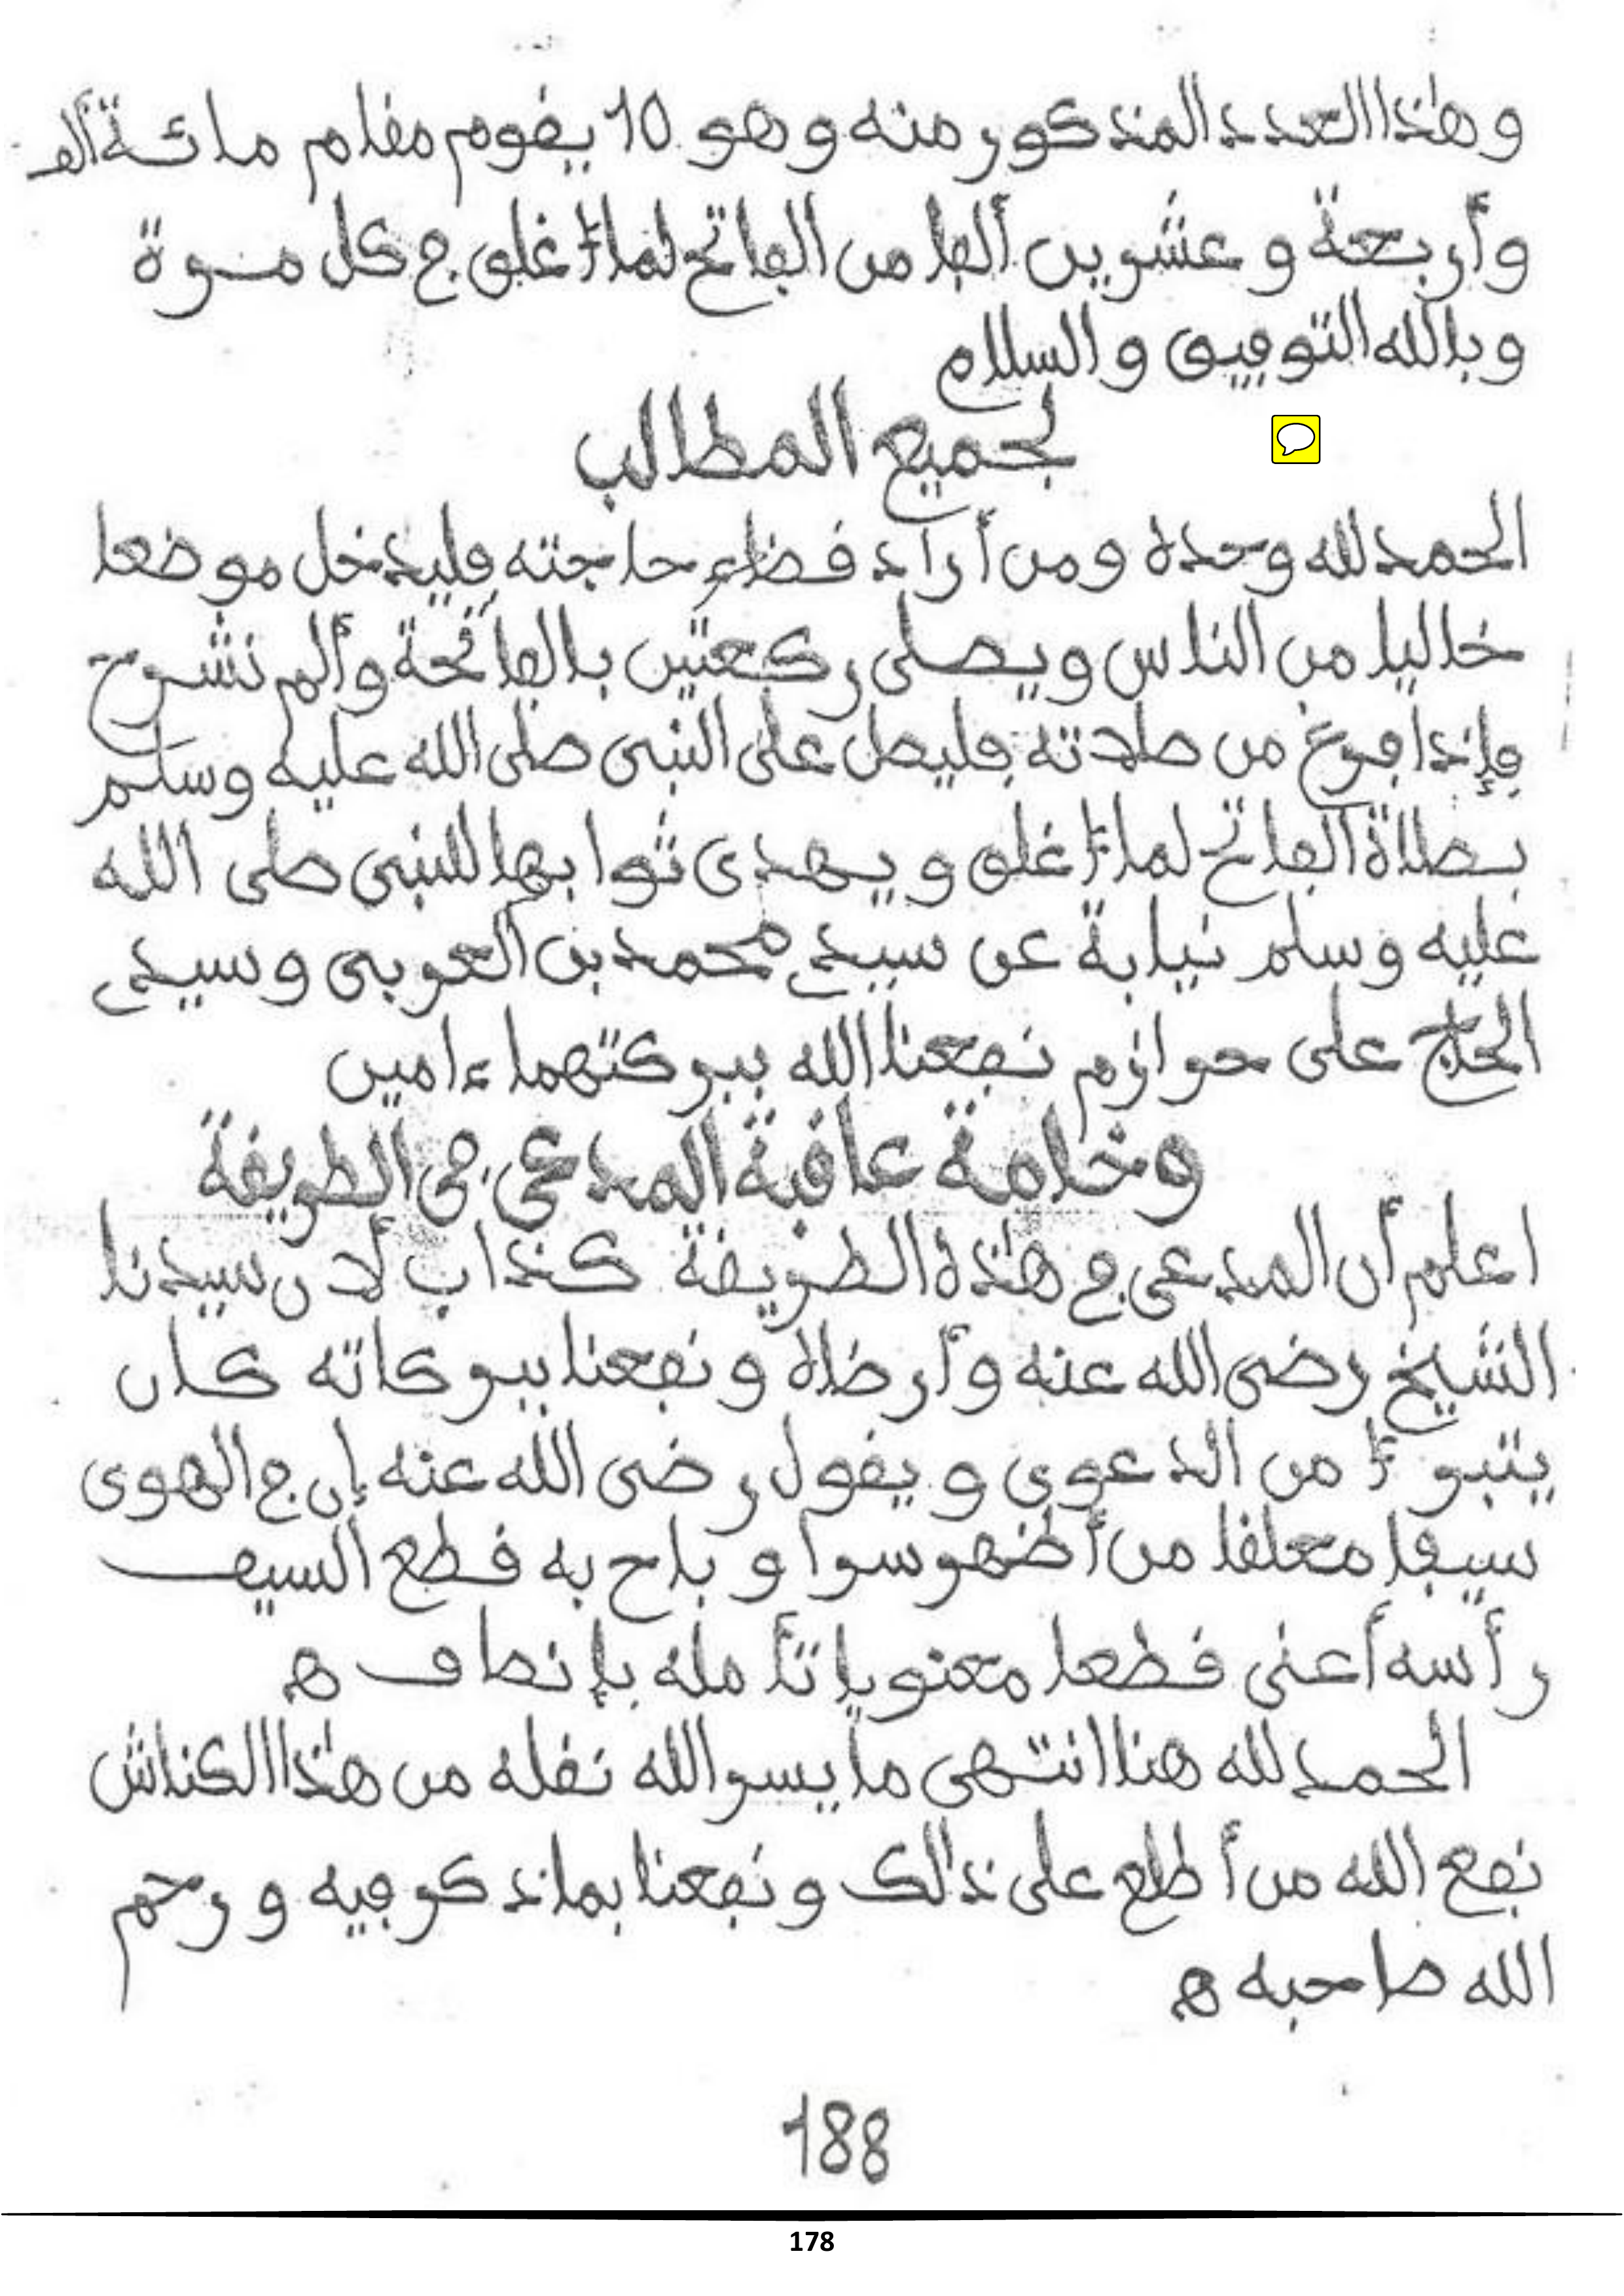 وهذا العدد المذكور منه وهو 10 يقوم مقام مائة ألف
وأربعة وعشرين ألفا من الفاتح لما أغلق في كل مرة
وبالله التوفيق والسلام
لجميع المطالب
الحمد لله وحده ومن أراد قضاء حاجته فليدخل موضعا
خاليا من الناس ويصلى ركعتين بالفاتحة وألم نشرح
فإذا فرغ من صلاته فليصل على النبى صلى الله عليه وسلم
بصلاة الفاتح لما أغلق ويهدى ثوابها للنبى صلى الله
عليه وسلم نيابة عن سيدي محمد بن العربى وسيدي
الحاج على حرازم نفعنا الله ببركتهما ءامين
وخامة عاقبة المدعى فى الطريقة
اعلم أن المدعى في هذه الطريقة كذاب لأن سيدنا
الشيخ رضى الله عنه وأرضاه ونفعنا ببركاته كان
يتبرأ من الدعوى ويقول رضى الله عنه إن في الهوى
سيفا معلقا من أظهر سرا وباح به قطع السيف
رأسه أعنى قطعا معنويا تأمله بإنصاف ه
الحمد لله هنا انتهى ما يسر الله نقله من هذا الكناش
نفع الله من أطلع على ذلك ونفعنا بما ذكر فيه ورحم
الله صاحبه ه
188
178